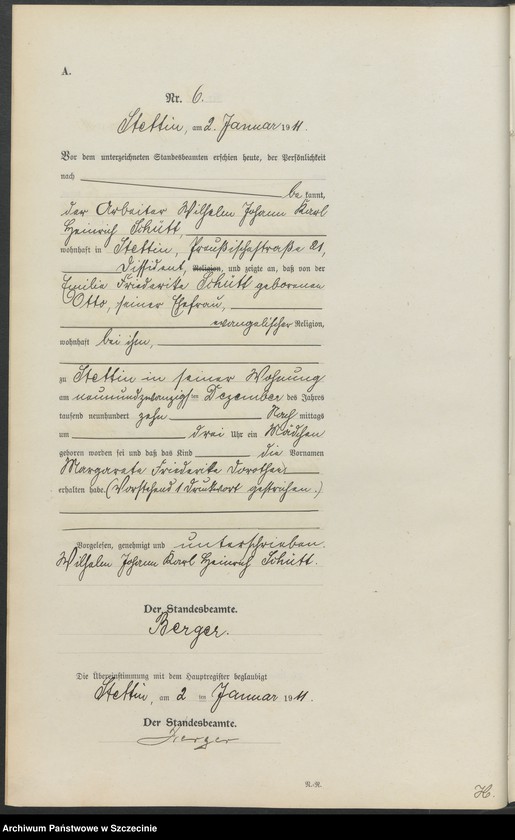 A.
Nr. 6.
Stettin, am 2. Januar 1911.
Vor dem unterzeichneten Standesbeamten erschien heute, der Persönlichkeit
nach
bekannt,
der Arbeiter Wilhelm Johann Karl
Heinrich Schütt,
wohnhaft in Stettin, Preußischestraße 21,
Dissident, Religion, und zeigte an, daß von der
Emilie Friederike Schütt geborenen
Otto, seiner Ehefrau,
evangelischer Religion,
wohnhaft bei ihm,
zu Stettin in seiner Wohnung
am neunundzwanzigsten Dezember des Jahres
tausend neunhundert zehn Nachmittags
um drei Uhr ein Mädchen
geboren worden sei und daß das Kind die Vornamen
Margarete Friederike Dorothea
erhalten habe. (Vorstehend 1 Druckwort gestrichen.)
Vorgelesen, genehmigt und unterschrieben.
Wilhelm Johann Karl Heinrich Schütt.
Der Standesbeamte.
Berger.
Die Übereinstimmung mit dem Hauptregister beglaubigt
Stettin, am 2 ten Januar 1911.
Der Standesbeamte.
Berger
N.-R.
H.
Archiwum Państwowe w Szczecinie